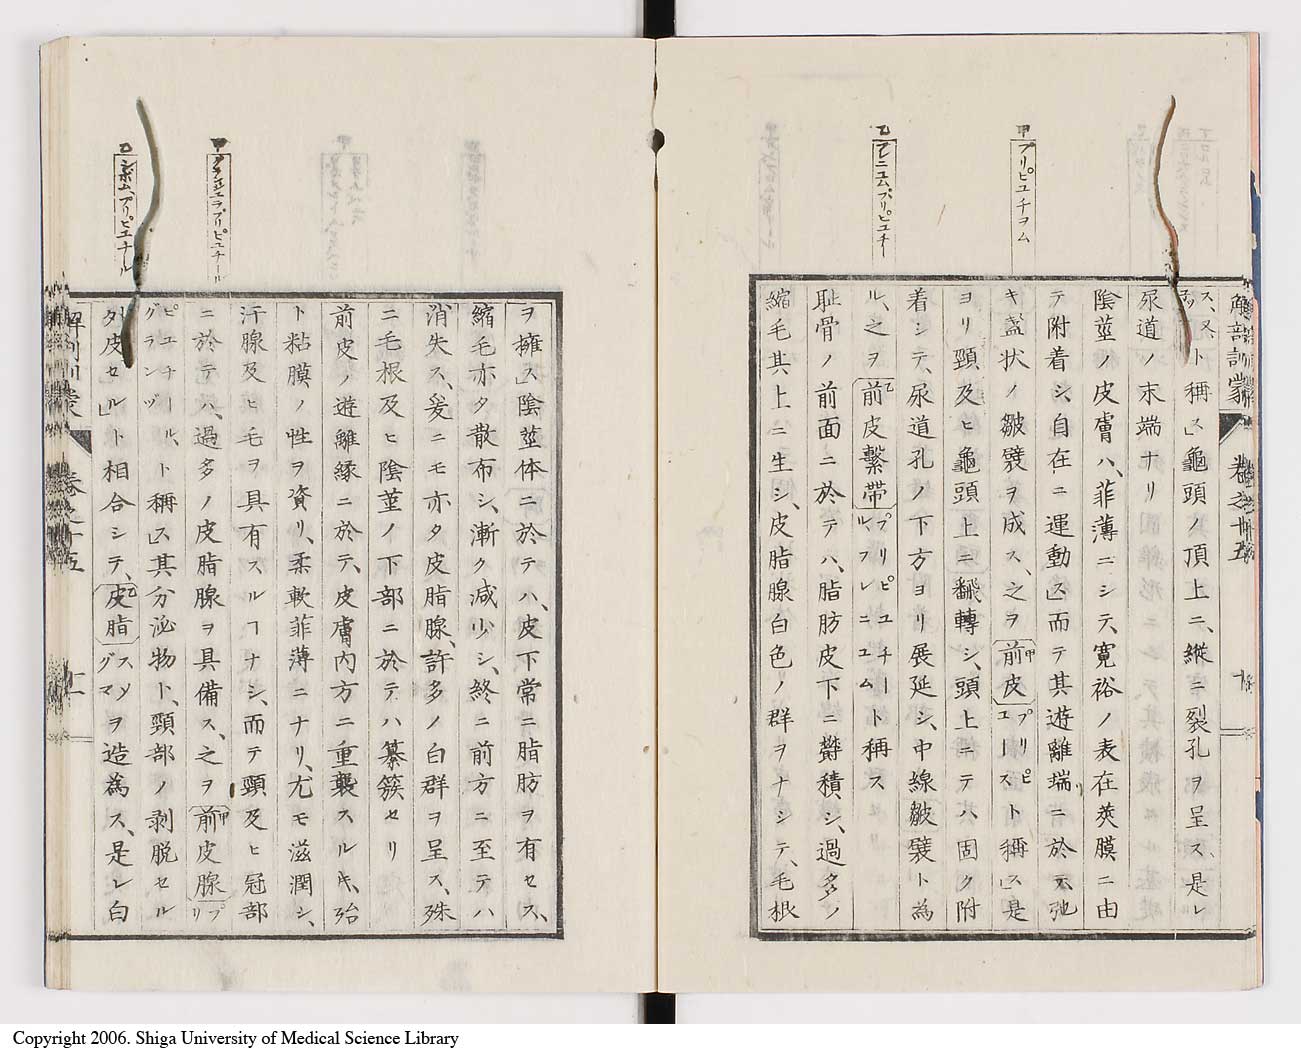 甲 プリピユチヲム
乙 フレニユム、プリピユチー
ス、又ト稱ス」龜頭ノ頂上ニ、縦ニ裂孔ヲ呈ス、是レ
尿道ノ末端ナリ
陰莖ノ皮膚ハ、菲薄ニシテ、寛裕ノ表在莢膜ニ由
テ附着シ、自在ニ運動ス」而テ其遊離端ニ於テ、弛
キ盞状ノ皺襞ヲ成ス、之ヲ前皮プリピユースト稱ス」是
ヨリ頸及ヒ龜頭上ニ飜轉シ、頭上ニテハ固ク附
着シテ、尿道孔ノ下方ヨリ展延シ、中線皺襞ト為
ル、之ヲ前皮繋帶プリピユチールフレニユムト稱ス
耻骨ノ前面ニ於テハ、脂肪皮下ニ欝積シ、過多ノ
縮毛其上ニ生シ、皮脂腺白色ノ群ヲナシテ、毛根
解剖訓蒙
巻之十五
甲 グランデユラプリピユチール
乙 シボム、プリピユチール
ヲ擁ス」陰莖体ニ於テハ、皮下常ニ脂肪ヲ有セス、
縮毛亦タ散布シ、漸ク減少シ、終ニ前方ニ至テハ
消失ス、爰ニモ亦タ皮脂腺、許多ノ白群ヲ呈ス、殊
ニ毛根及ヒ陰莖ノ下部ニ於テハ纂簇セリ
前皮ノ遊離縁ニ於テ、皮膚内方ニ重襲スルキ、殆
ト粘膜ノ性ヲ資リ、柔軟菲薄ニナリ、尤モ滋潤シ、
汗腺及ヒ毛ヲ具有スルヿナシ、而テ頸及ヒ冠部
ニ於テハ、過多ノ皮脂腺ヲ具備ス、之ヲ前皮腺プリ
ピユチールグランヅト稱ス」其分泌物ト、頸部ノ剥脱セル
外皮セル」ト相合シテ、皮脂スメグマヲ造為ス、是レ白
解剖訓蒙
巻之十五
Copyright 2006. Shiga University of Medical Science Library